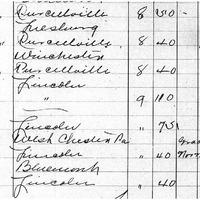 Purcellville 8 50
Leesburg
Purcellville 8 40
Winchester
Purcellville 8 40
Lincoln
" 9 10
Lincoln " 75
West Chester Pa
Lincoln " 40
Bluemont
Lincoln " 40